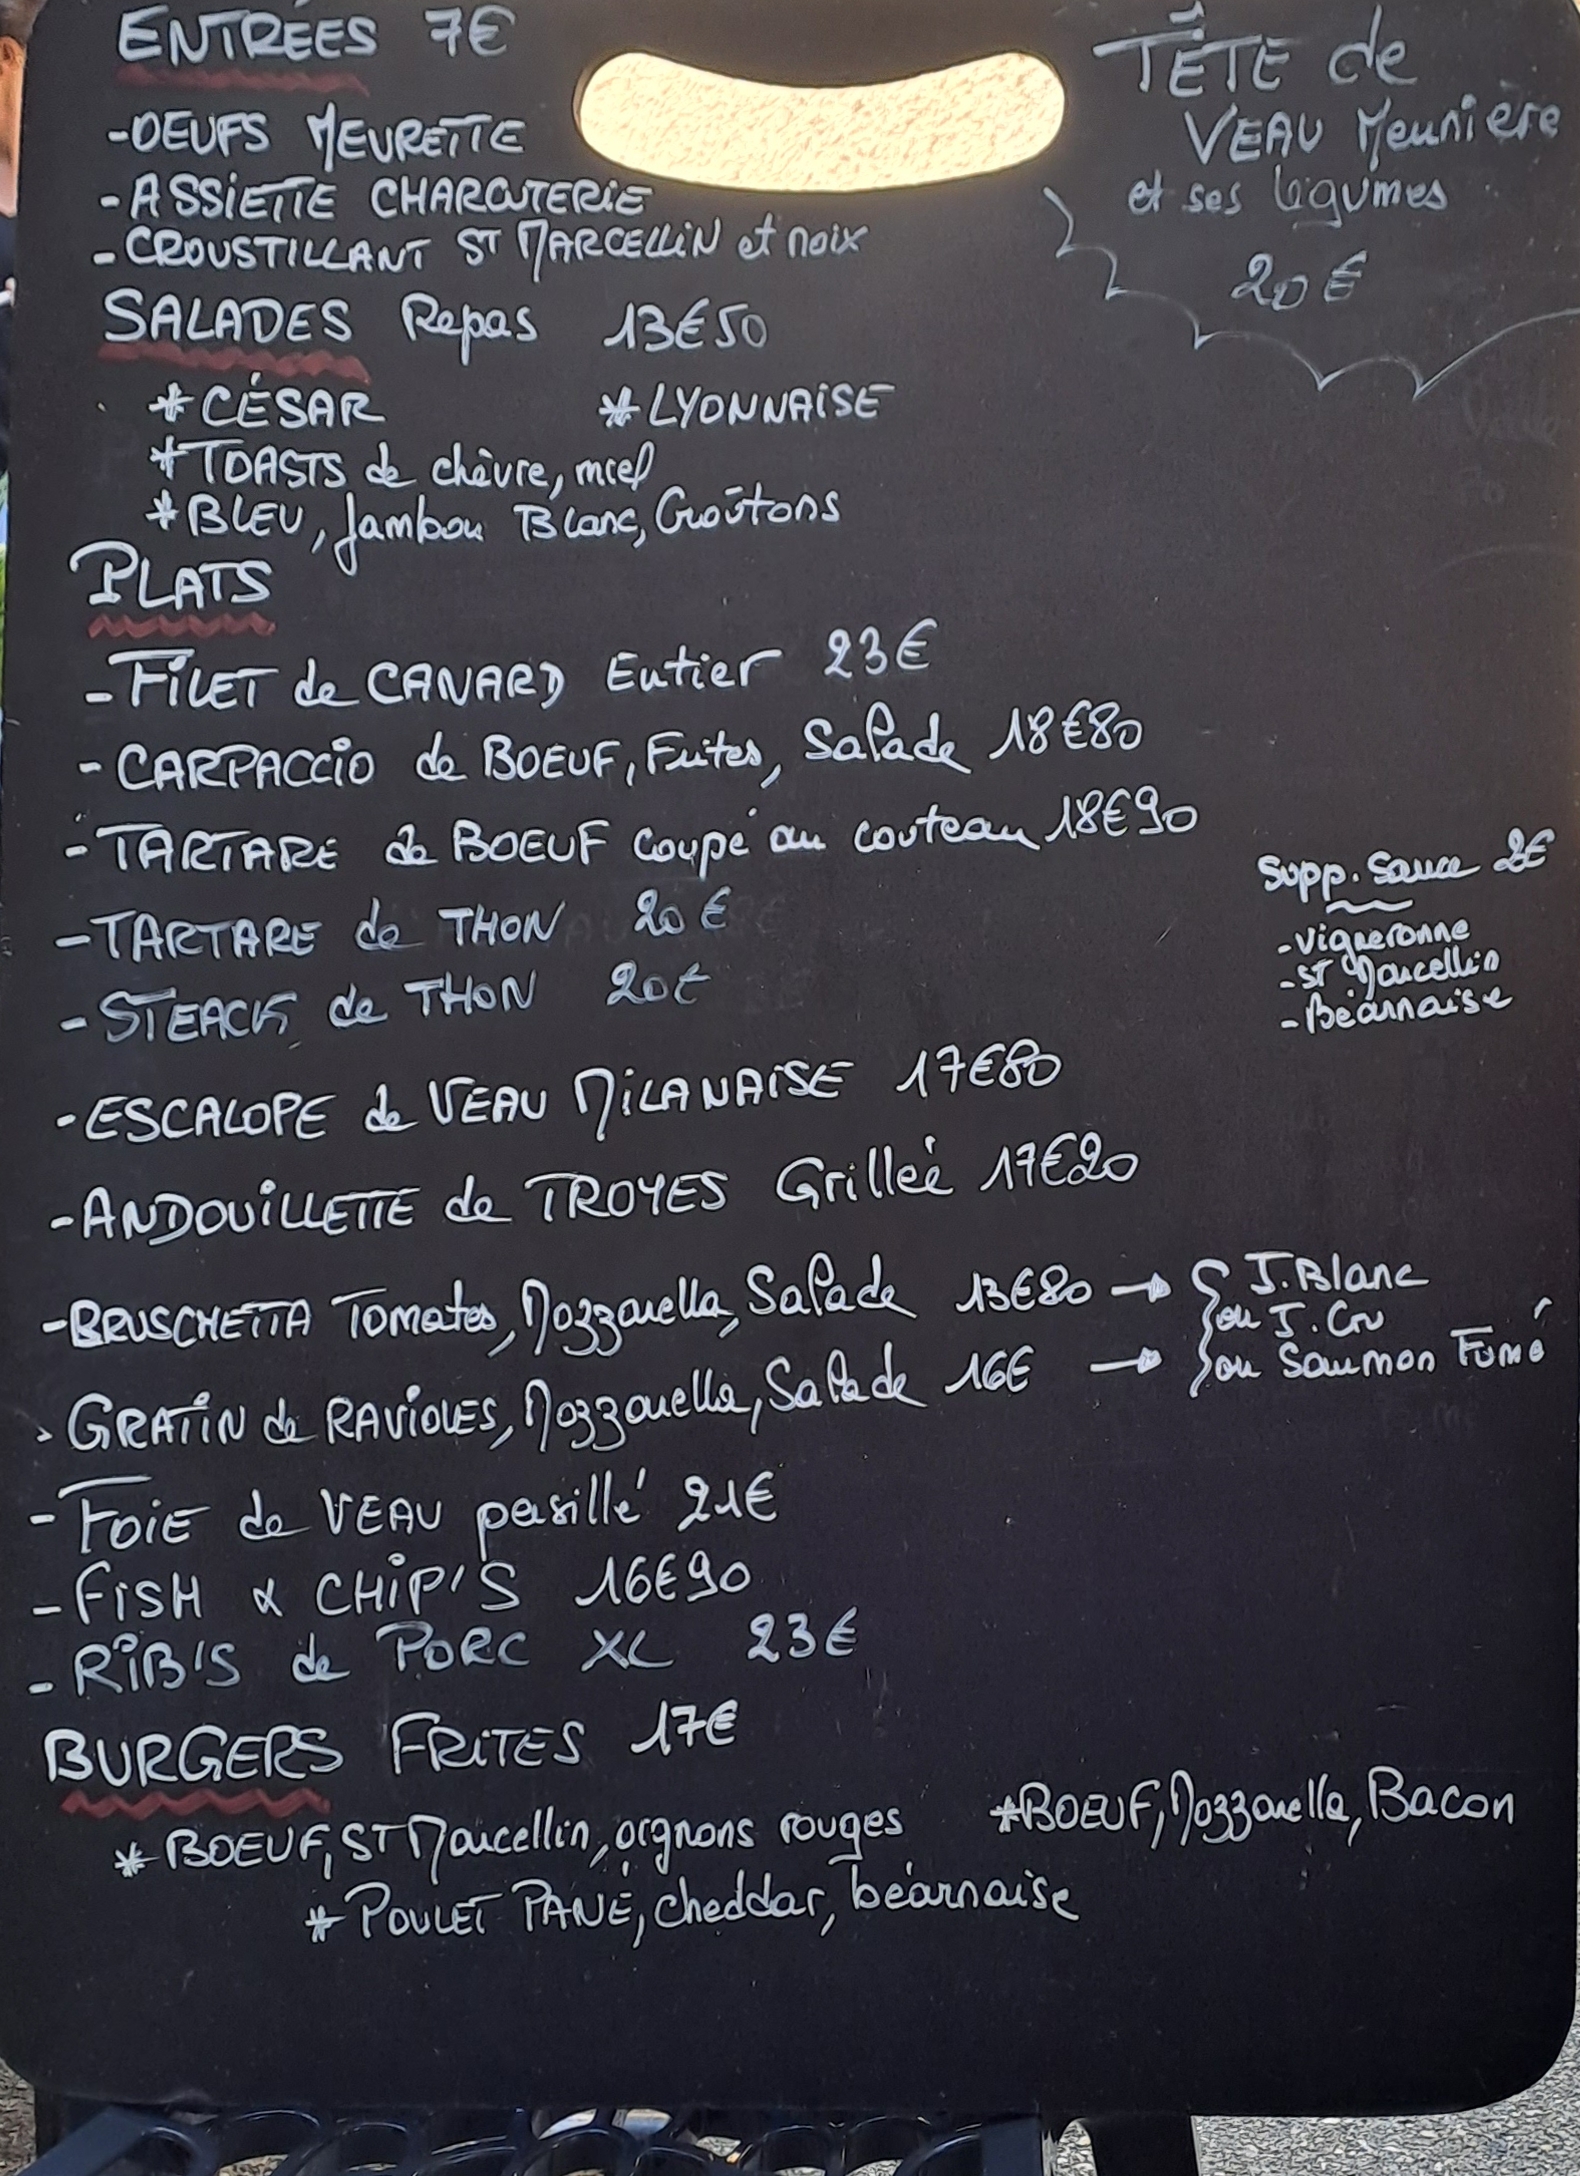 ENTRÉES 7€
-OEUFS MEURETTE
-ASSIETTE CHARCUTERIE
-CROUSTILLANT ST MARCELLIN et noix
TÊTE de
VEAU Meunière
et ses légumes
20€
SALADES Repas 13€50
*CÉSAR *LYONNAISE
*TOASTS de chèvre, miel
*BLEU, Jambon Blanc, Croûtons
PLATS
-FILET de CANARD Entier 23€
-CARPACCIO de BOEUF, Frites, Salade 18€80
-TARTARE de BOEUF coupé au couteau 18€90
-TARTARE de THON 20€
-STEACK de THON 20€
Supp. Sauce 2€
-Vigneronne
-ST Marcellin
-Béarnaise
-ESCALOPE de VEAU MILANAISE 17€80
-ANDOUILLETTE de TROYES Grilleé 17€20
-BRUSCHETTA Tomates, Mozzarella, Salade 13€80 → { J.Blanc
ou J.Cru
-GRATIN de RAVIOLES, Mozzarella, Salade 16€ → ou Saumon Fumé
-FOIE de VEAU persillé 21€
-FISH & CHIP'S 16€90
-RIB'S de PORC XL 23€
BURGERS FRITES 17€
*BOEUF, ST Marcellin, oignons rouges *BOEUF, Mozzarella, Bacon
*POULET PANÉ, cheddar, béarnaise